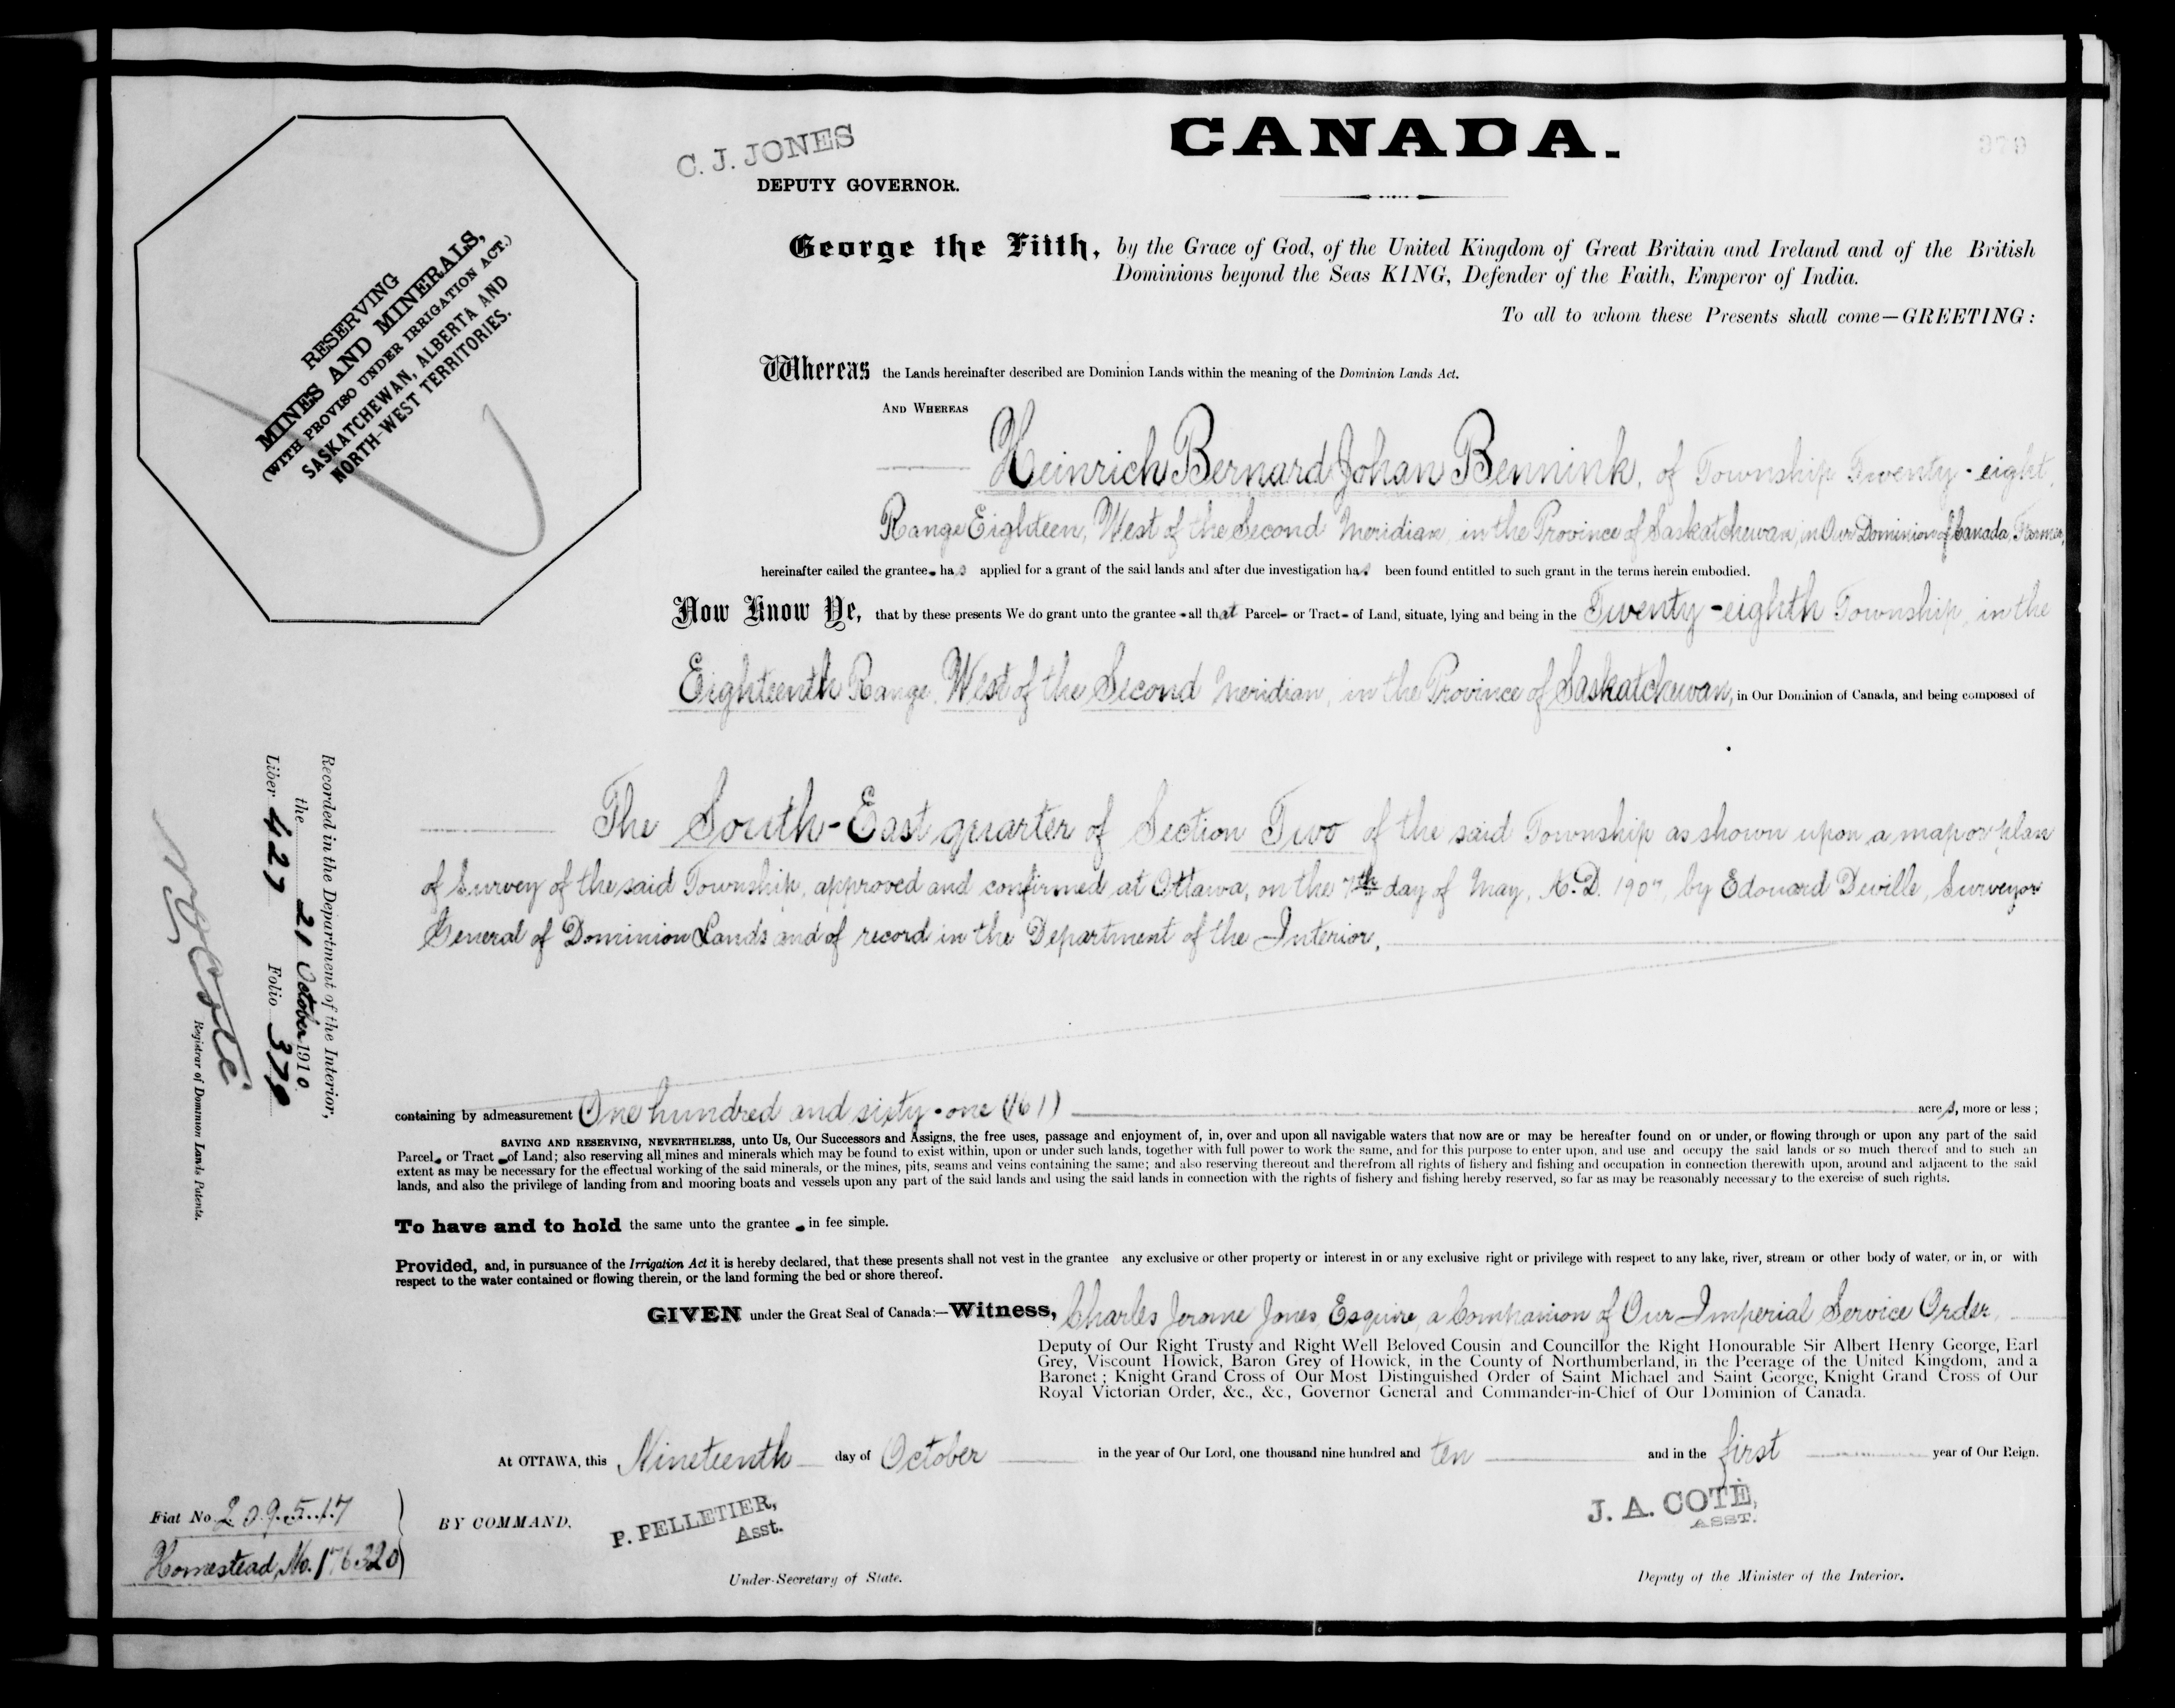 CANADA.
379
C. J. JONES
DEPUTY GOVERNOR.
George the Fifth, by the Grace of God, of the United Kingdom of Great Britain and Ireland and of the British
Dominions beyond the Seas KING, Defender of the Faith, Emperor of India.
To all to whom these Presents shall come—GREETING:
RESERVING
MINES AND MINERALS,
(WITH PROVISO UNDER IRRIGATION ACT.)
SASKATCHEWAN, ALBERTA AND
NORTH-WEST TERRITORIES.
Whereas the Lands hereinafter described are Dominion Lands within the meaning of the Dominion Lands Act.
AND WHEREAS
Heinrich Bernard Johan Bennink, of Township Twenty-eight,
Range Eighteen, West of the Second Meridian, in the Province of Saskatchewan, in Our Dominion of Canada, Farmer,
hereinafter called the grantee has applied for a grant of the said lands and after due investigation has been found entitled to such grant in the terms herein embodied.
Now Know Ye, that by these presents We do grant unto the grantee all that Parcel or Tract of Land, situate, lying and being in the Twenty-eighth Township, in the
Eighteenth Range, West of the Second Meridian, in the Province of Saskatchewan, in Our Dominion of Canada, and being composed of
The South-East quarter of Section Two of the said Township as shown upon a map or plan
of Survey of the said Township, approved and confirmed at Ottawa, on the 7th day of May, A.D. 1907, by Edouard Deville, Surveyor
General of Dominion Lands and of record in the Department of the Interior,
Recorded in the Department of the Interior,
the 21 October 1910
Liber 427 Folio 379
N. O. Coté
Registrar of Dominion Lands Patents.
containing by admeasurement One hundred and sixty-one (161) acres, more or less;
SAVING AND RESERVING, NEVERTHELESS, unto Us, Our Successors and Assigns, the free uses, passage and enjoyment of, in, over and upon all navigable waters that now are or may be hereafter found on or under, or flowing through or upon any part of the said
Parcel or Tract of Land; also reserving all mines and minerals which may be found to exist within, upon or under such lands, together with full power to work the same, and for this purpose to enter upon, and use and occupy the said lands or so much thereof and to such an
extent as may be necessary for the effectual working of the said minerals, or the mines, pits, seams and veins containing the same; and also reserving thereout and therefrom all rights of fishery and fishing and occupation in connection therewith upon, around and adjacent to the said
lands, and also the privilege of landing from and mooring boats and vessels upon any part of the said lands and using the said lands in connection with the rights of fishery and fishing hereby reserved, so far as may be reasonably necessary to the exercise of such rights.
To have and to hold the same unto the grantee in fee simple.
Provided, and, in pursuance of the Irrigation Act it is hereby declared, that these presents shall not vest in the grantee any exclusive or other property or interest in or any exclusive right or privilege with respect to any lake, river, stream or other body of water, or in, or with
respect to the water contained or flowing therein, or the land forming the bed or shore thereof.
GIVEN under the Great Seal of Canada:—Witness, Charles Jerome Jones, Esquire, a Companion of Our Imperial Service Order,
Deputy of Our Right Trusty and Right Well Beloved Cousin and Councillor the Right Honourable Sir Albert Henry George, Earl
Grey, Viscount Howick, Baron Grey of Howick, in the County of Northumberland, in the Peerage of the United Kingdom, and a
Baronet; Knight Grand Cross of Our Most Distinguished Order of Saint Michael and Saint George, Knight Grand Cross of Our
Royal Victorian Order, &c., &c., Governor General and Commander-in-Chief of Our Dominion of Canada.
At OTTAWA, this Nineteenth day of October in the year of Our Lord, one thousand nine hundred and ten and in the first year of Our Reign.
Fiat No. 209517
Homestead, No. 176320
BY COMMAND,
P. PELLETIER,
Asst.
Under-Secretary of State.
J. A. COTÉ,
ASST.
Deputy of the Minister of the Interior.